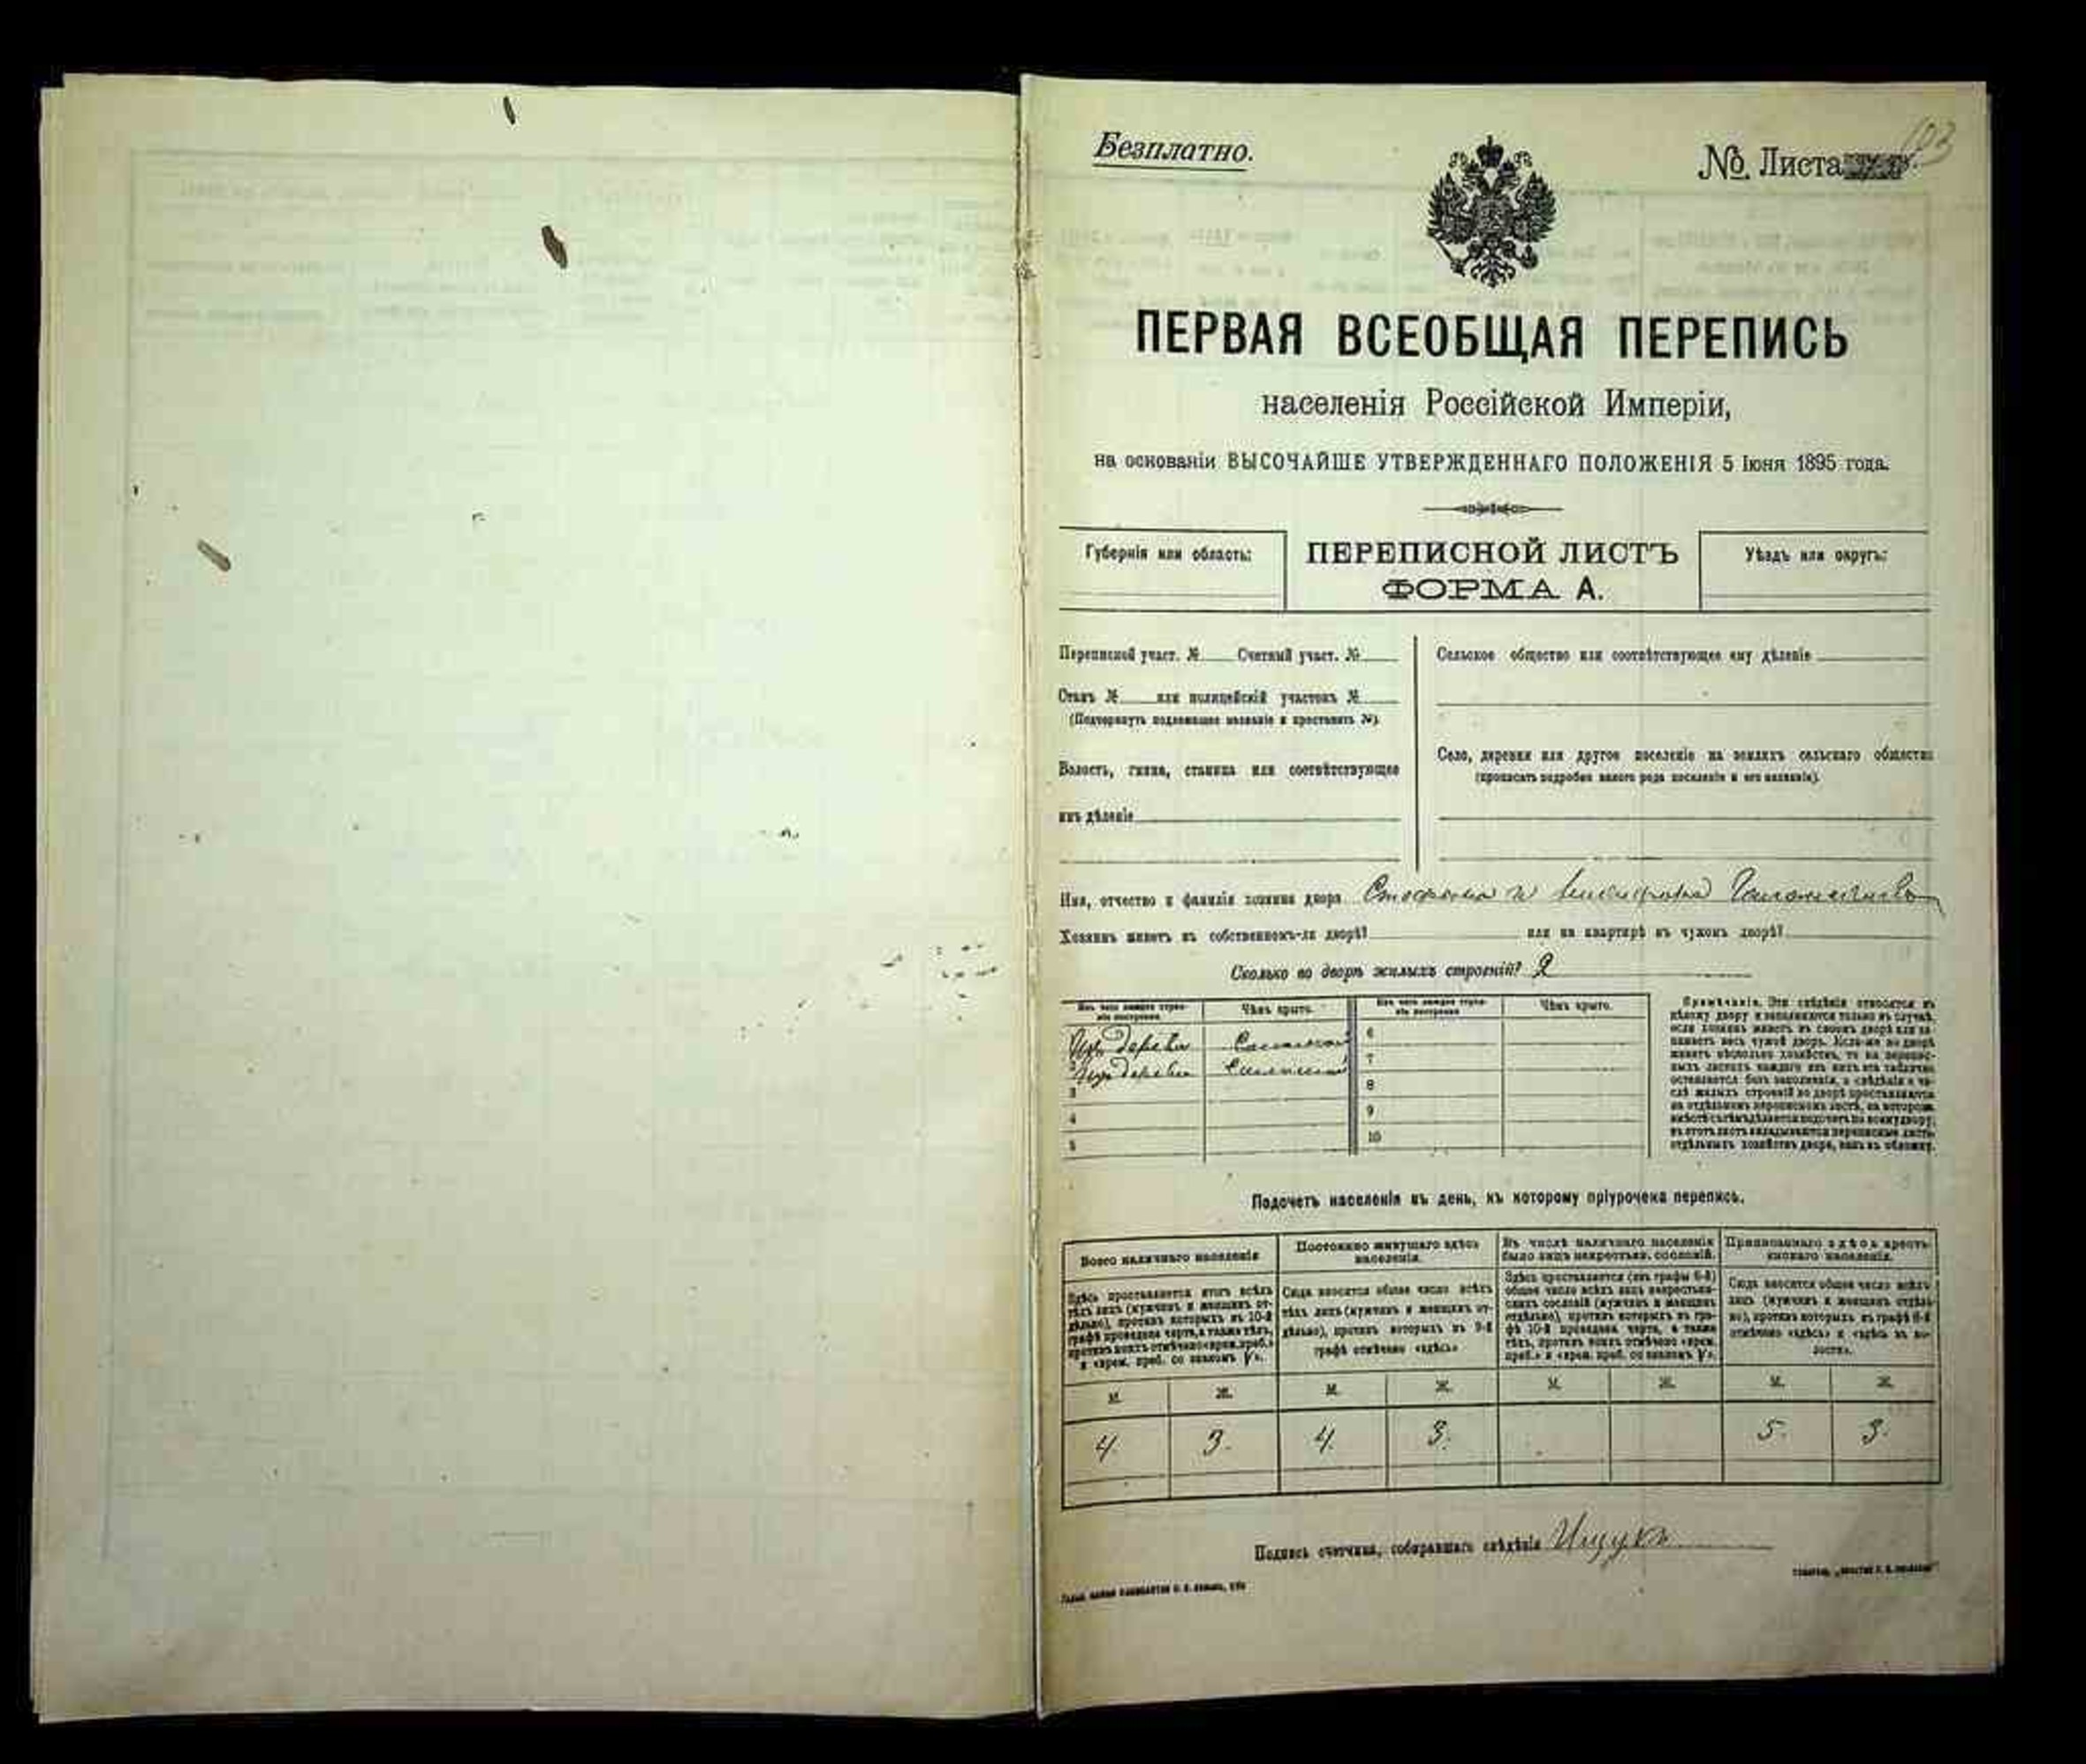 Безплатно.
№. Листа
ПЕРВАЯ ВСЕОБЩАЯ ПЕРЕПИСЬ
населенія Россійской Имперіи,
на основаніи ВЫСОЧАЙШЕ УТВЕРЖДЕННАГО ПОЛОЖЕНІЯ 5 Іюня 1895 года.
Губернія или область:
ПЕРЕПИСНОЙ ЛИСТЪ
ФОРМА А.
Уѣздъ или округъ:
Переписной участ. № Счетный участ. №
Станъ № или полицейскій участокъ №
(Подчеркнуть подлежащее названіе и проставить №).
Волость, гмина, станица или соотвѣтствующее
имъ дѣленіе
Сельское общество или соотвѣтствующее ему дѣленіе
Село, деревня или другое поселеніе на земляхъ сельскаго общества
(прописать подробно какого рода поселеніе и его названіе).
Имя, отчество и фамилія хозяина двора и
Хозяинъ живетъ въ собственномъ-ли дворѣ? или на квартирѣ въ чужомъ дворѣ?
Сколько во дворѣ жилыхъ строеній? 2
Изъ чего каждое строеніе построено. Чѣмъ крыто. Изъ чего каждое строеніе построено. Чѣмъ крыто.
Изъ дерева Соломой 6
2 Изъ дерева Соломой 7
3 8
4 9
5 10
Примѣчаніе. Эти свѣдѣнія относятся къ
цѣлому двору и заполняются только въ случаѣ,
если хозяинъ живетъ въ своемъ дворѣ или за-
нимаетъ весь чужой дворъ. Если-же во дворѣ
живетъ нѣсколько хозяйствъ, то на перепис-
ныхъ листахъ каждаго изъ нихъ эта табличка
оставляется безъ заполненія, а свѣдѣнія о чи-
слѣ жилыхъ строеній во дворѣ проставляются
на отдѣльномъ переписномъ листѣ, на которомъ
вмѣстѣ съ тѣмъ дѣлается подсчетъ по всему двору;
въ этотъ листъ вкладываются переписные листы
отдѣльныхъ хозяйствъ двора, какъ въ обложку.
Подсчетъ населенія въ день, къ которому пріурочена перепись.
Всего наличнаго населенія
Постоянно живущаго здѣсь
населенія.
Въ числѣ наличнаго населенія
было лицъ некрестьян. сословій.
Приписаннаго здѣсь кресть-
янскаго населенія.
Здѣсь проставляется итогъ всѣхъ
тѣхъ лицъ (мужчинъ и женщинъ от-
дѣльно), противъ которыхъ въ 10-й
графѣ проведена черта, а также тѣхъ,
противъ коихъ отмѣчено «врем. преб.»
и «врем. преб. со знакомъ V».
Сюда вносится общее число всѣхъ
тѣхъ лицъ (мужчинъ и женщинъ от-
дѣльно), противъ которыхъ въ 9-й
графѣ отмѣчено «здѣсь»
Здѣсь проставляется (изъ графы 6-й)
общее число всѣхъ лицъ некрестьян-
скихъ сословій (мужчинъ и женщинъ
отдѣльно), противъ которыхъ въ гра-
фѣ 10-й проведена черта, а также
тѣхъ, противъ коихъ отмѣчено «врем.
преб.» и «врем. преб. со знакомъ V».
Сюда вносится общее число всѣхъ
лицъ (мужчинъ и женщинъ отдѣль-
но), противъ которыхъ въ графѣ 8-й
отмѣчено «здѣсь» и «здѣсь въ во-
лости».
м. ж. м. ж. м. ж. м. ж.
4. 3. 4. 3. 5. 3.
Подпись счетчика, собиравшаго свѣдѣнія Ищукъ